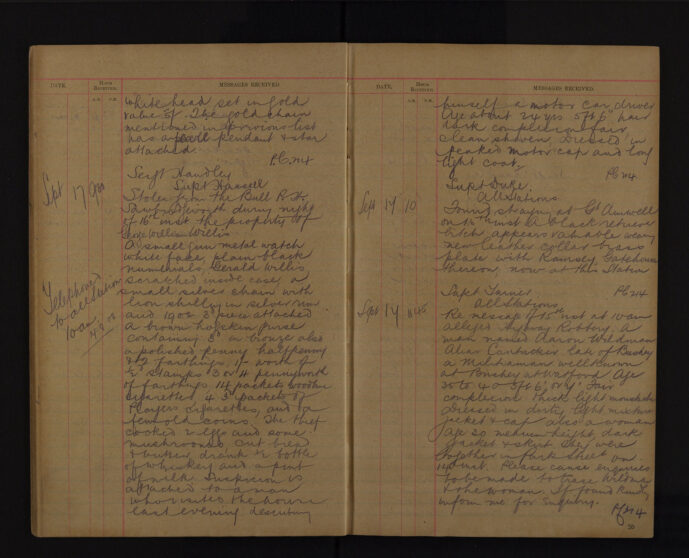 DATE.
HOUR RECEIVED.
MESSAGES RECEIVED.
A.M. P.M.
white head set in gold
value £5. The gold chain
mentioned in previous list
has a pearl pendant & star
attached
PC 214
Sept 17 9
Sergt Handley
Supt Hassell
Stolen from the Bull P.H.
Sawbridgeworth during night
of 16th inst the property of
Willis
A small gun metal watch
white face, plain black
numerals, Gerald Willis
scratched inside case, a
small silver chain with
lion shilling in silver rim
and 1902 3d piece attached
a brown purse
containing 3d in bronze also
a polished penny halfpenny
& 2 farthings, 1/- worth of
½d stamps 3 or 4 pennyworth
of farthings 14 packets woodbine
cigarettes 4 3d packets of
Players cigarettes, and a
few old coins. The thief
cooked eggs and some
mushrooms cut bread
& butter, drank ½ bottle
of whiskey and a pint
of milk. Suspicion is
attached to a man
who visited the house
last evening describing
Telephoned
to all stations
10 am
DATE.
HOUR RECEIVED.
MESSAGES RECEIVED.
A.M. P.M.
himself a motor car driver
age about 24 yrs 5ft 6" hair
dark complexion fair
clean shaven dressed in
peaked motor cap and long
light coat.
PC 214
Sept 17 10
Supt Duke.
All Stations.
Found straying at Gt Amwell
on inst a black retriever
bitch, appears valuable wearing
new leather collar brass
plate with Ramsey Gatehouse
thereon, now at this Station
PC 214
Sept 17 11.45
Supt Turner
All Stations.
Re message of 15th inst at 10 am
alleged Highway Robbery. A
man named Aaron Wildman
Alias Cantucker late of Bushey
a Militiaman well known
at Bushey & Watford Age
35 to 40 5ft 6" or 7" Fair
complexion thick light moustache
dressed in dirty light mixture
jacket & cap also a woman
age 30 medium height dark
jacket & skirt. They were
together in Park Street on
14th inst. Please cause enquiries
to be made to trace Wildman
& the woman. If found kindly
inform me for enquiry.
PC 214
20